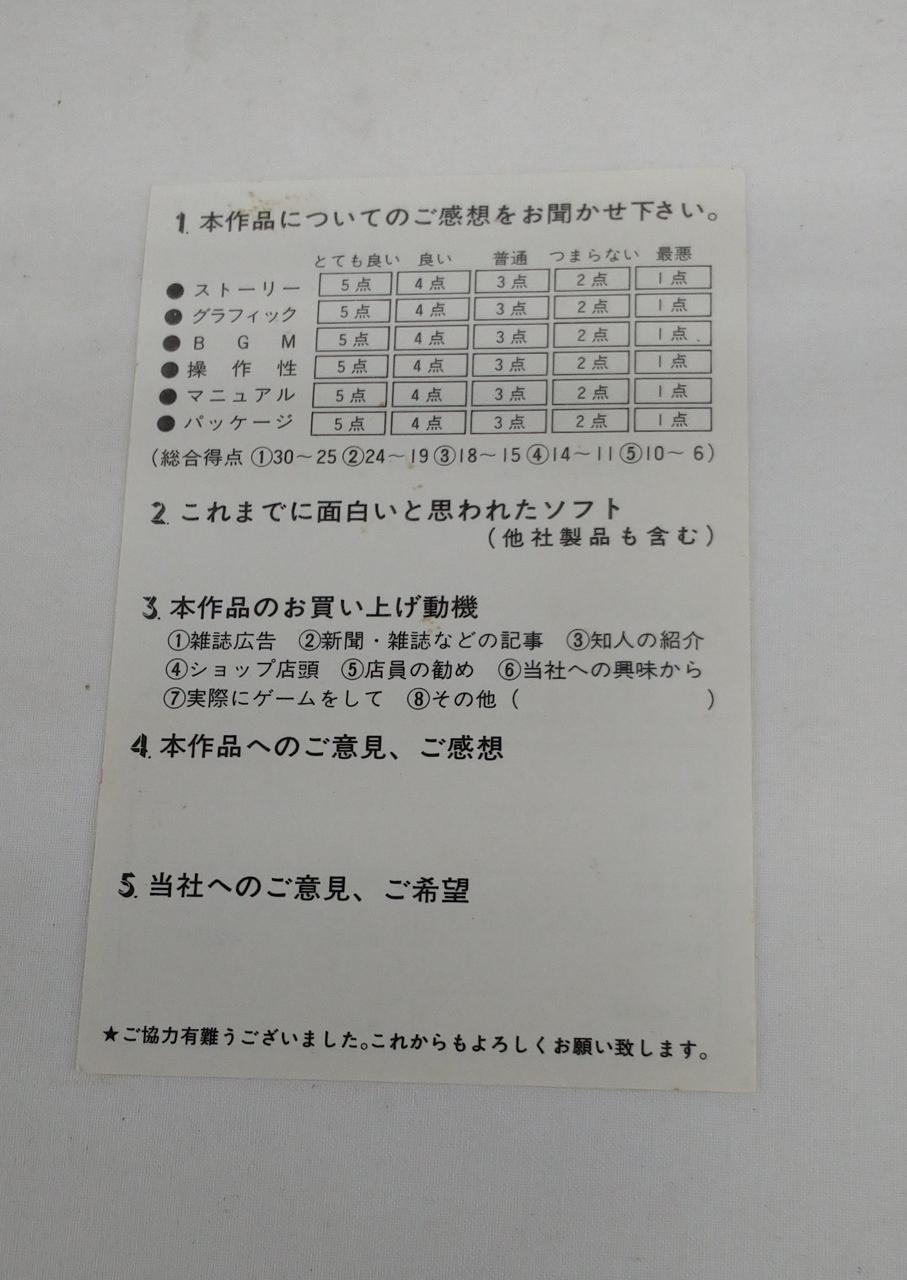 1. 本作品についてのご感想をお聞かせ下さい。
とても良い 良い 普通 つまらない 最悪
●ストーリー 5点 4点 3点 2点 1点
●グラフィック 5点 4点 3点 2点 1点
●BGM 5点 4点 3点 2点 1点
●操作性 5点 4点 3点 2点 1点
●マニュアル 5点 4点 3点 2点 1点
●パッケージ 5点 4点 3点 2点 1点
(総合得点 ①30〜25 ②24〜19 ③18〜15 ④14〜11 ⑤10〜6)
2. これまでに面白いと思われたソフト
(他社製品も含む)
3. 本作品のお買い上げ動機
①雑誌広告 ②新聞・雑誌などの記事 ③知人の紹介
④ショップ店頭 ⑤店員の勧め ⑥当社への興味から
⑦実際にゲームをして ⑧その他( )
4. 本作品へのご意見、ご感想
5. 当社へのご意見、ご希望
★ご協力有難うございました。これからもよろしくお願い致します。